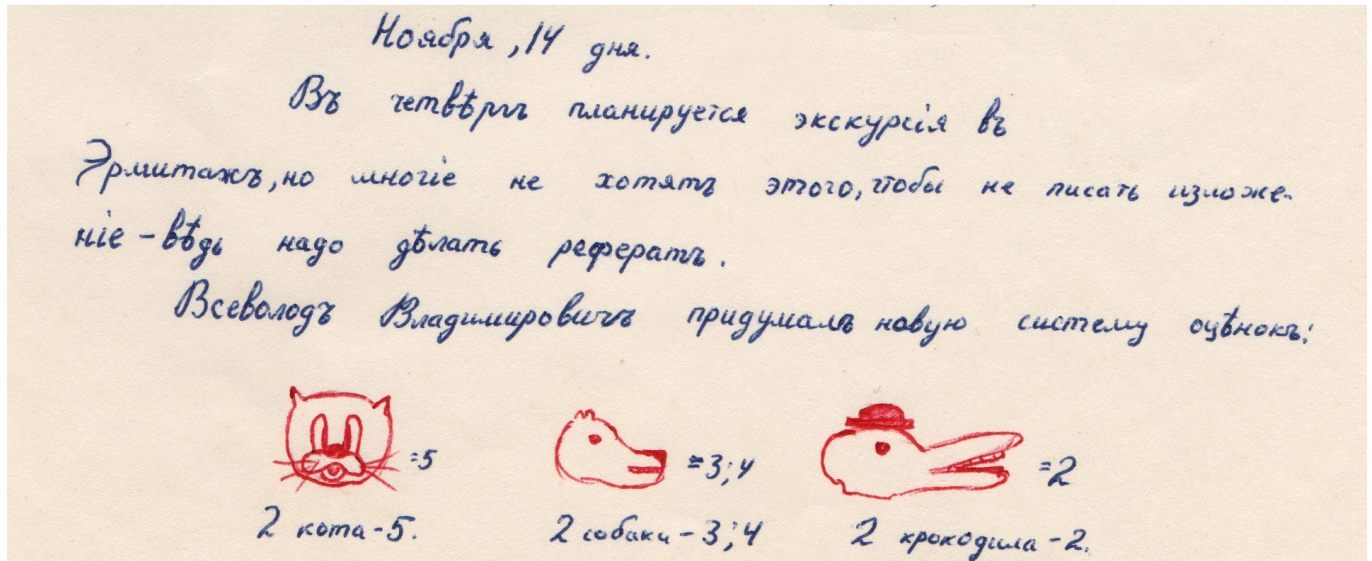 Ноября, 14 дня.
Въ четвѣргъ планируется экскурсія въ
Эрмитажъ, но многіе не хотятъ этого, чтобы не писать изложе-
ніе - вѣдь надо дѣлать рефератъ.
Всеволодъ Владимировичъ придумалъ новую систему оцѣнокъ:
=5 =3;4 =2
2 кота - 5. 2 собаки - 3;4 2 крокодила - 2.